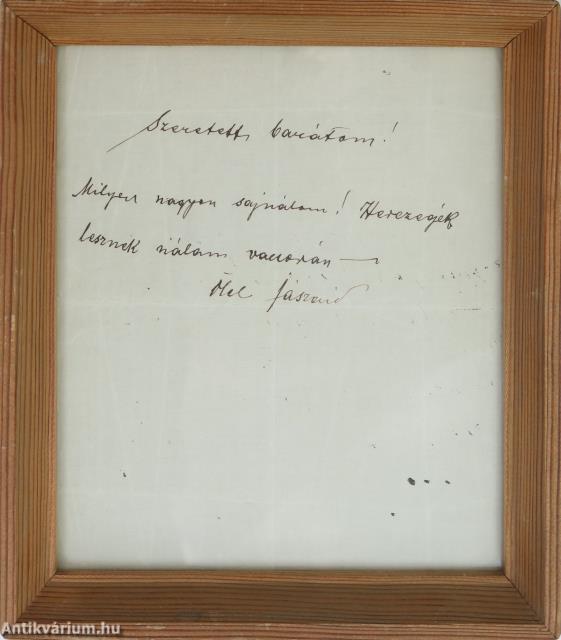 Szeretett barátom!
Milyen nagyon sajnálom! Herczegék
lesznek nálam vacsorán —
Ölel Jászai
Antikvárium.hu